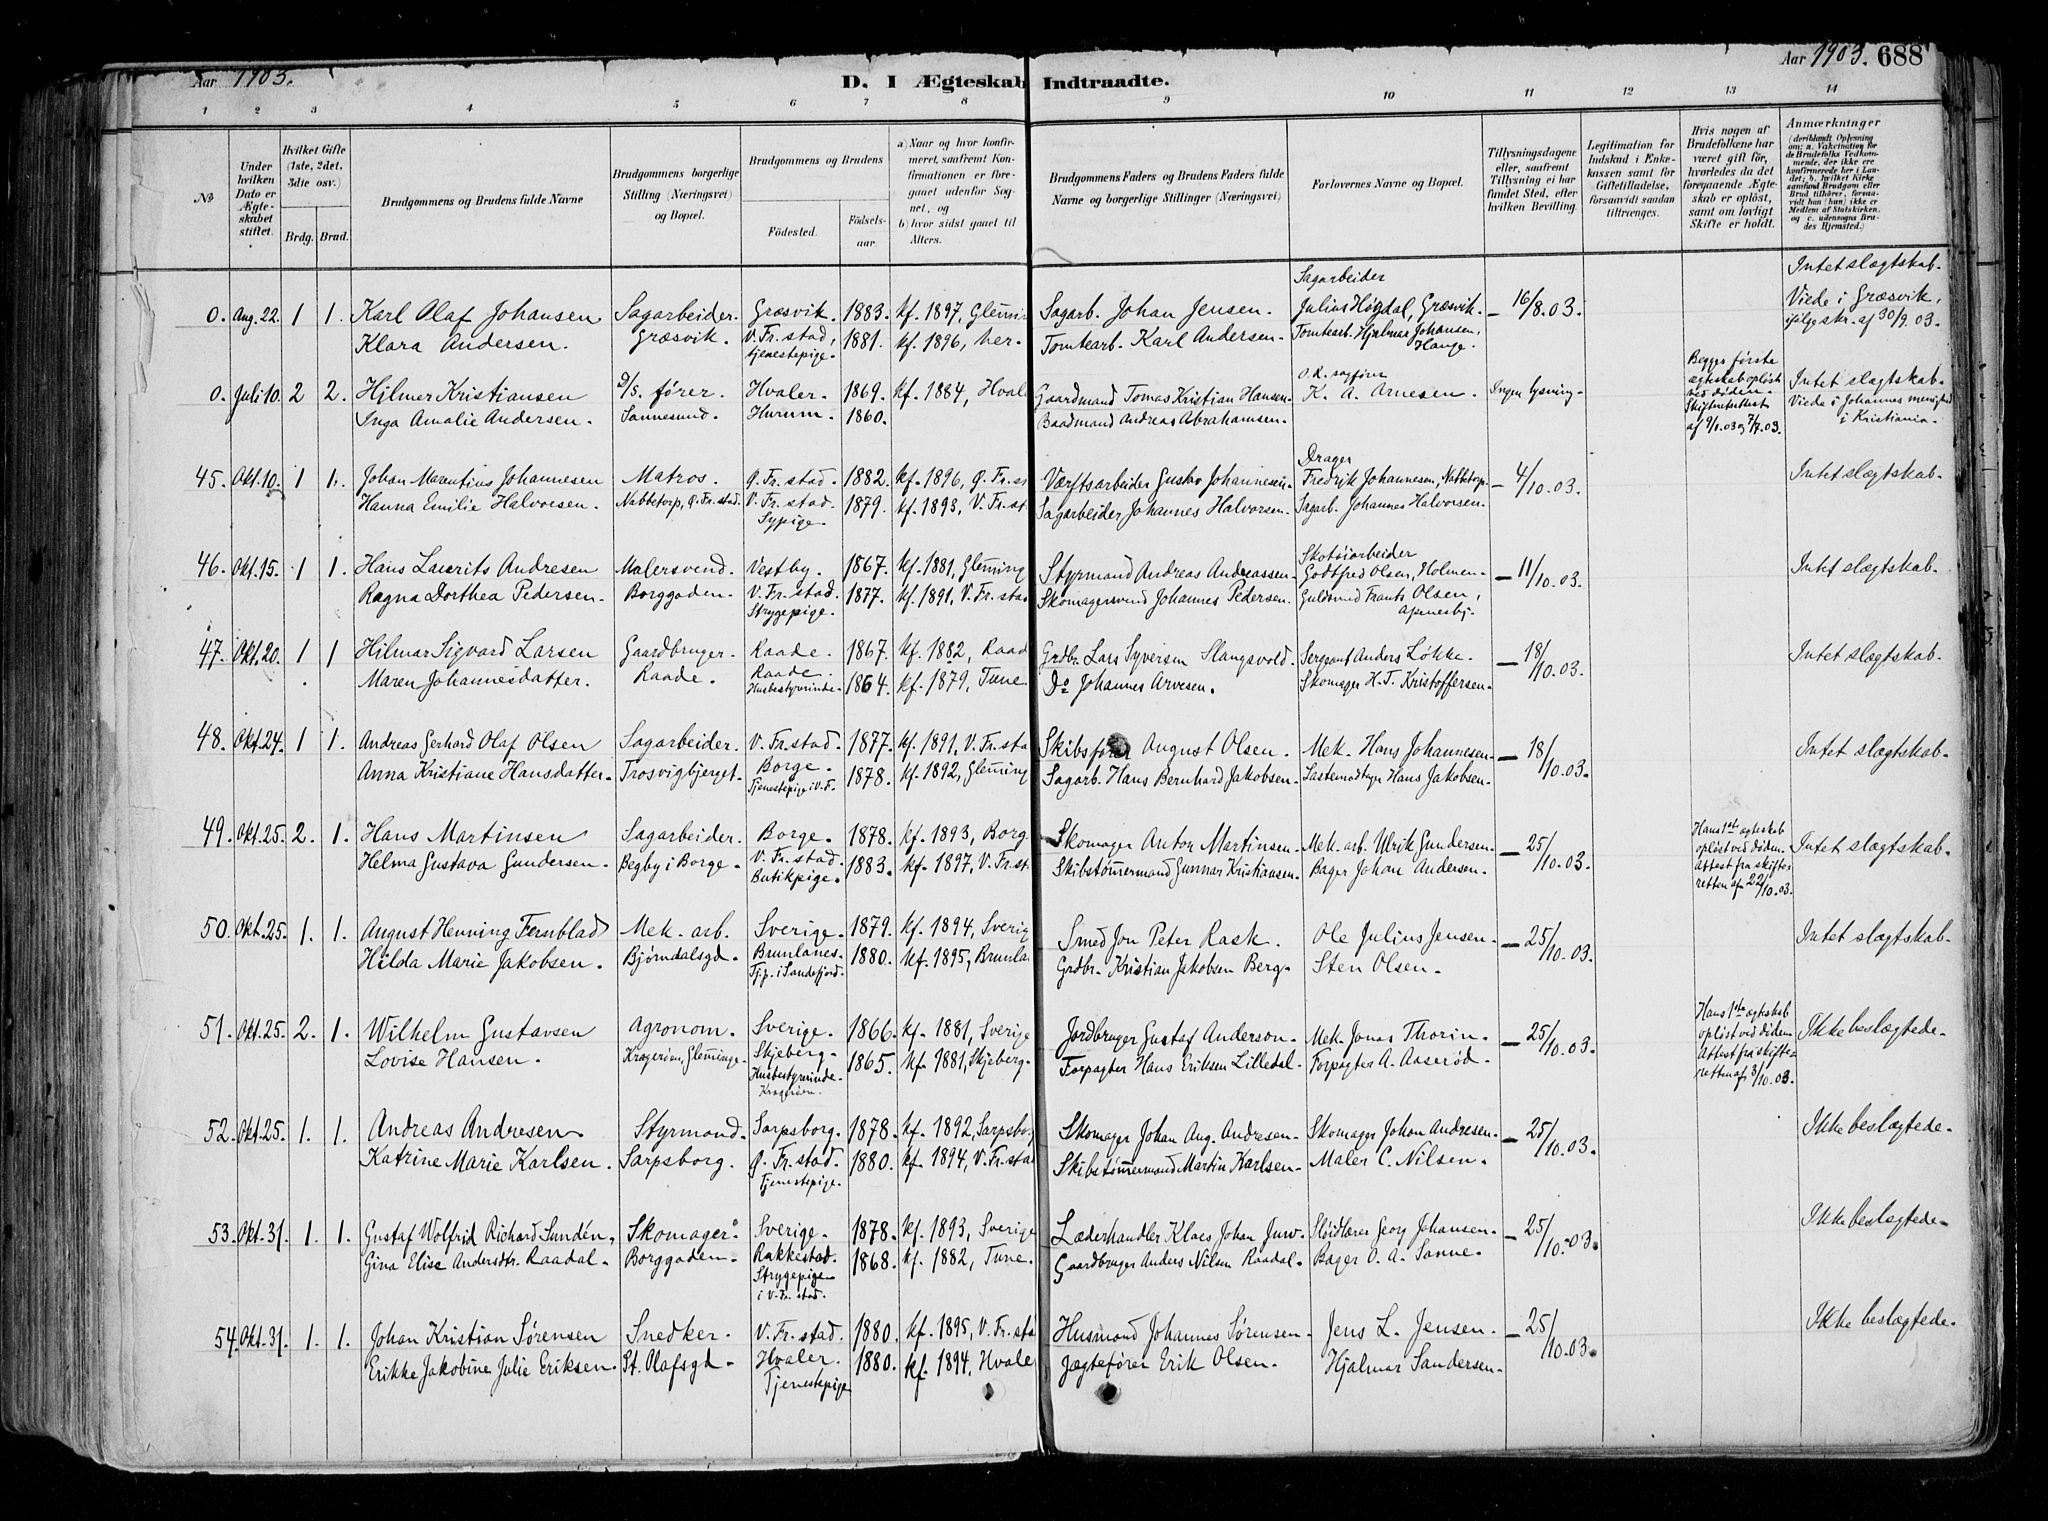 Aar 1903.
D. I Ægteskab Indtraadte.
Aar 1903. 688
1 2 3 4 5 6 7 8 9 10 11 12 13 14
No
Under hvilken Dato er Ægteskabet stiftet.
Hvilket Gifte (1ste, 2det, 3die osv.)
Brdg. Brud.
Brudgommens og Brudens fulde Navne
Brudgommens borgerlige Stilling (Næringsvei) og Bopæl.
Brudgommens og Brudens
Födested.
Födselsaar.
a) Naar og hvor konfirmeret, saafremt Konfirmationen er foregaaet udenför Sognet, og
b) hvor sidst gaaet til Alters.
Brudgommens Faders og Brudens Faders fulde Navne og borgerlige Stillinger (Næringsvei)
Forlovernes Navne og Bopæl.
Tillysningsdagene eller, saafremt Tillysning ei har fundet Sted, efter hvilken Bevilling.
Legitimation for Indskud i Enkekassen samt for Giftetilladelse, forsaavidt saadan tiltrænges.
Hvis nogen af Brudefolkene har været gift för, hvorledes da det foregaaende Ægteskab er oplöst, samt om lovligt Skifte er holdt.
Anmærkninger (deriblandt Oplysning om: a. Vakcination for de Brudefolks Vedkommende, der ikke ere konfirmerede her i Landet; b. hvilket Kirkesamfund Brudgom eller Brud tilhörer, forsaavidt han (hun) ikke er Medlem af Statskirken, og c. udensogns Brudes Hjemsted.)
0. Aug. 22. 1 1. Karl Olaf Johansen Sagarbeider. Græsvik. 1883. kf. 1897, Glemin Sagarb. Johan Jensen. Sagarbeider Julius Høgdal, Græsvik. 16/8.03. Intet slægtskab. Viede i Græsvik, ifølge skr. af 30/9.03.
Klara Andersen. Græsvik. V. Fr.stad, tjenestepige. 1881. kf. 1896, her. Tomtearb. Karl Andersen. Tomtearb. Hjalmar Johansen, Hauge.
0. Juli 10. 2 2. Hilmer Kristiansen D/s. fører. Hvaler. 1869. kf. 1884, Hval Gaardmand Tomas Kristian Hansen. O.R. sagfører K. A. Arnesen. Ingen lysning. Begges første ægteskab opløst ved døden. Skifteretsattest af 9/1.03 og 7/7.03. Intet slægtskab. Viede i Johannes menighed i Kristiania.
Inga Amalie Andersen. Sannesund. Hurum. 1860. Baadmand Andreas Abrahamsen.
45. Okt. 10. 1 1. Johan Marentius Johannesen Matros. Ø. Fr.stad. 1882. kf. 1896, Ø. Fr.s Værftsarbeider Gustav Johannesen. Drager Fredrik Johannesen, Nabbetorp. 4/10.03. Intet slægtskab.
Hanna Emilie Halvorsen. Nabbetorp, Ø. Fr.stad. V. Fr.stad. Sypige. 1879. kf. 1893, V. Fr.st Sagarbeider Johannes Halvorsen. Sagarb. Johannes Halvorsen.
46. Okt. 15. 1 1. Hans Laurits Andresen Malersvend. Vestby. 1867. kf. 1881, Gleming Styrmand Andreas Andreassen. Skotøiarbeider Godtfred Olsen, Holmen. 11/10.03. Intet slægtskab.
Ragna Dorthea Pedersen. Borggaden. V. Fr.stad. Strygepige. 1877. kf. 1891, V. Fr.stad Skomagersvend Johannes Pedersen. Guldsmed Frants Olsen, Apenesbj.
47. Okt. 20. 1 1 Hilmar Sigvard Larsen Gaardbruger. Raade. 1867. kf. 1882, Raad Grdbr. Lars Syversen Slangsvold. Sergeant Anders Løkke. 18/10.03. Intet slægtskab.
Maren Johannesdatter. Raade. Raade. Husbestyrerinde. 1864. kf. 1879, Tune Do Johannes Arvesen. Skomager H. T. Kristoffersen.
48. Okt. 24. 1 1. Andreas Gerhard Olaf Olsen Sagarbeider. V. Fr.stad. 1877. kf. 1891, V. Fr.sta Skibsfører August Olsen. Mek. Hans Johannesen. 18/10.03. Intet slægtskab.
Anna Kristiane Hansdatter. Trosvigbjerget. Borge. Tjenestepige i V.F. 1878. kf. 1892, Gleming Sagarb. Hans Bernhard Jakobsen. Lastemodtager Hans Jakobsen.
49. Okt. 25. 2. 1. Hans Martinsen Sagarbeider. Borge. 1878. kf. 1893, Borg Skomager Anton Martinsen. Mek. arb. Ulrik Gundersen. 25/10.03. Hans 1ste ægteskab opløst ved døden. Attest fra skifteretten af 22/10.03. Intet slægtskab.
Helma Gustava Gundersen. Begby i Borge. V. Fr.stad. Butikpige. 1883. kf. 1897, V. Fr.st Skibstømmermand Gunnar Kristiansen. Bager Johan Andersen.
50. Okt. 25. 1. 1. August Henning Fernblad Mek. arb. Sverige. 1879. kf. 1894, Sverig Smed Jon Peter Rask. Ole Julius Jensen. 25/10.03. Intet slægtskab.
Hilda Marie Jakobsen. Bjørndalsgd. Brunlanes. Tjp. i Sandefjord. 1880. kf. 1895, Brunla Grdbr. Kristian Jakobsen Berg. Sten Olsen.
51. Okt. 25. 2. 1. Wilhelm Gustavsen Agronom. Sverige. 1866. kf. 1881, Sverige Jordbruger Gustaf Anderson. Mek. Jonas Thorin. 25/10.03. Hans 1ste ægteskab opløst ved døden. Attest fra skifteretten af 3/10.03. Ikke beslægtede.
Lovise Hansen. Kragerøen, Gleminge. Skjeberg. Husbestyrerinde. Kragerøen. 1865. kf. 1881, Skjeberg. Forpagter Hans Eriksen Lilledal. Forpagter A. Aaserød.
52. Okt. 25. 1. 1. Andreas Andresen Styrmand. Sarpsborg. 1878. kf. 1892, Sarpsbo Skomager Johan Aug. Andresen. Skomager Johan Andresen. 25/10.03. Ikke beslægtede.
Katrine Marie Karlsen. Sarpsborg. Ø. Fr.stad. Tjenestepige. 1880. kf. 1894, V. Fr.stad Skibstømmermand Martin Karlsen. Maler C. Nilsen.
53. Okt. 31. 1. 1. Gustaf Wolfrid Richard Sundén, Skomager. Sverige. 1878. kf. 1893, Sverige Læderhandler Klaes Johan Sløidlærer Georg Johansen. 25/10.03. Ikke beslægtede.
Gina Elise Andersdtr. Raadal. Borggaden. Rakkestad. Strygepige i V. Fr.stad. 1868. kf. 1882, Tune. Gaardbruger Anders Nilsen Raadal. Bager O. A. Sanne.
54. Okt. 31. 1. 1. Johan Kristian Sørensen Snedker. V. Fr.stad. 1880. kf. 1895, V. Fr.sta Husmand Johannes Sørensen. Jens L. Jensen. 25/10.03. Ikke beslægtede.
Erikke Jakobine Julie Eriksen St. Olafsgd. Hvaler. Tjenestepige 1880. kf. 1894, Hvale Jægtefører Erik Olsen. Hjalmar Sandersen.